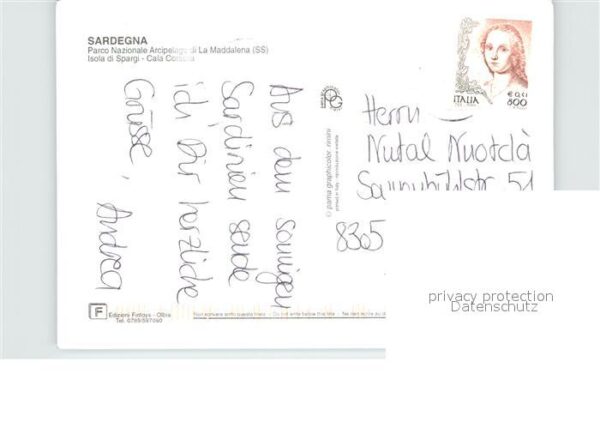 SARDEGNA
Parco Nazionale Arcipelago di La Maddalena (SS)
Isola di Spargi - Cala Corsara
Aus dem sonnigen
Sardinien sende
ich Dir herzliche
Grüsse, Andrea
© parma graphicolor rimini
ITALIA
€ 0,41
800
Herrn
Nutal Nuotclà
51
8305
F Edizioni Fintoys - Olbia
Tel. 0789/597060
Non scrivere sotto questa linea - Do not write below this line -
privacy protection
Datenschutz